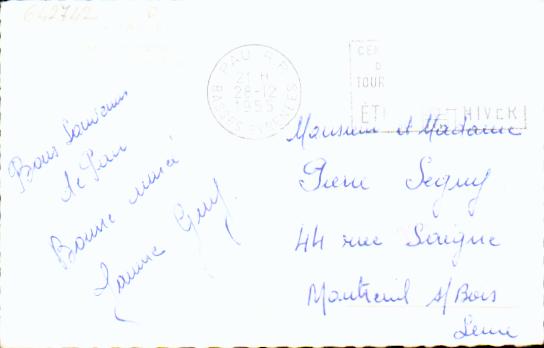 642742
PAU R.P.
21 H
28-12
1955
BASSES-PYRENEES
CEN
TOUR
ÉT HIVER
Bons Souvenirs
de Pau
Bonne année
Guy
Monsieur et Madame
Pierre Seguy
44 rue
Montreuil s/Bois
Seine